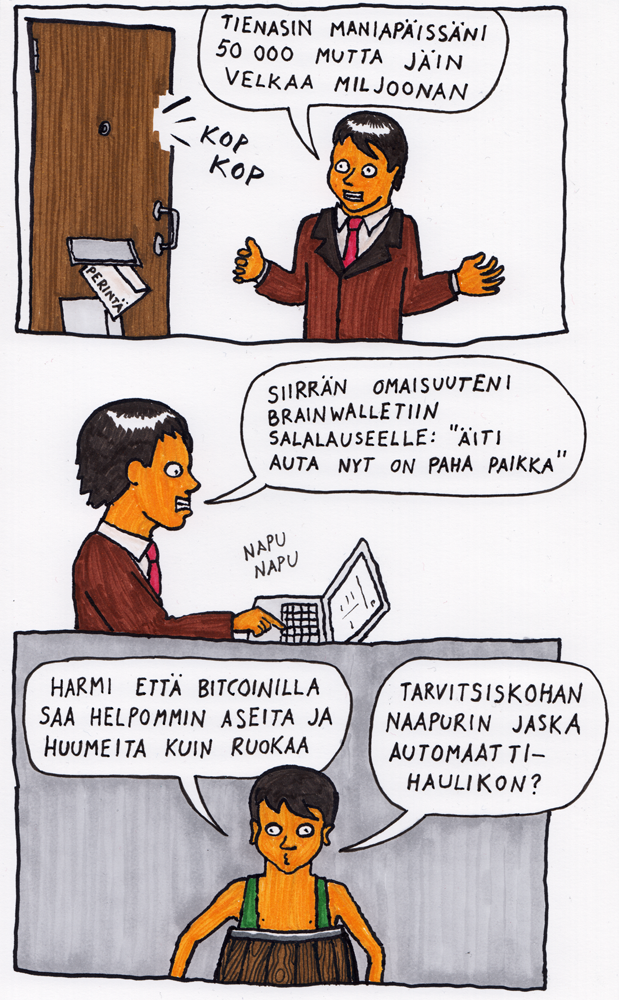 TIENASIN MANIAPÄISSÄNI
50 000 MUTTA JÄIN
VELKAA MILJOONAN
KOP
KOP
PERINTÄ
SIIRRÄN OMAISUUTENI
BRAINWALLETIIN
SALALAUSEELLE: "ÄITI
AUTA NYT ON PAHA PAIKKA"
NAPU
NAPU
HARMI ETTÄ BITCOINILLA
SAA HELPOMMIN ASEITA JA
HUUMEITA KUIN RUOKAA
TARVITSISKOHAN
NAAPURIN JASKA
AUTOMAATTI-
HAULIKON?